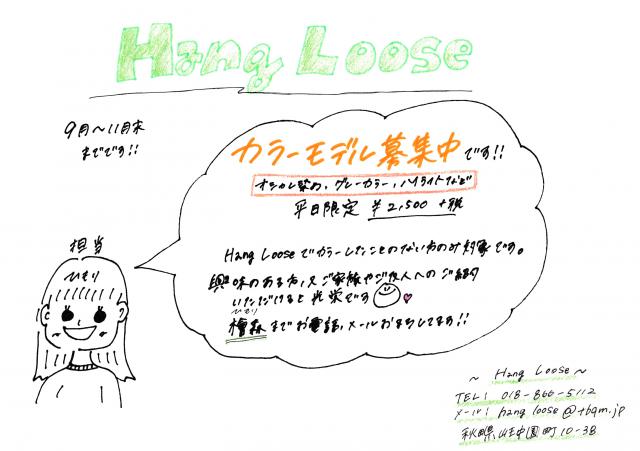 Hang Loose
9月〜11月末
までです!!
カラーモデル募集中です!!
オシャレ染め, グレーカラー, ハイライトなど
平日限定 ¥2,500 +税
Hang Looseでカラーしたことのない方のみ対象です。
興味のある方、又ご家族やご友人へのご紹介
いただけると光栄です
ひもり
檜森までお電話、メールお待ちしてます!!
担当
ひもり
〜 Hang Loose 〜
TEL: 018-866-5112
メール: hang loose@tbgm.jp
秋田県山王中園町10-38